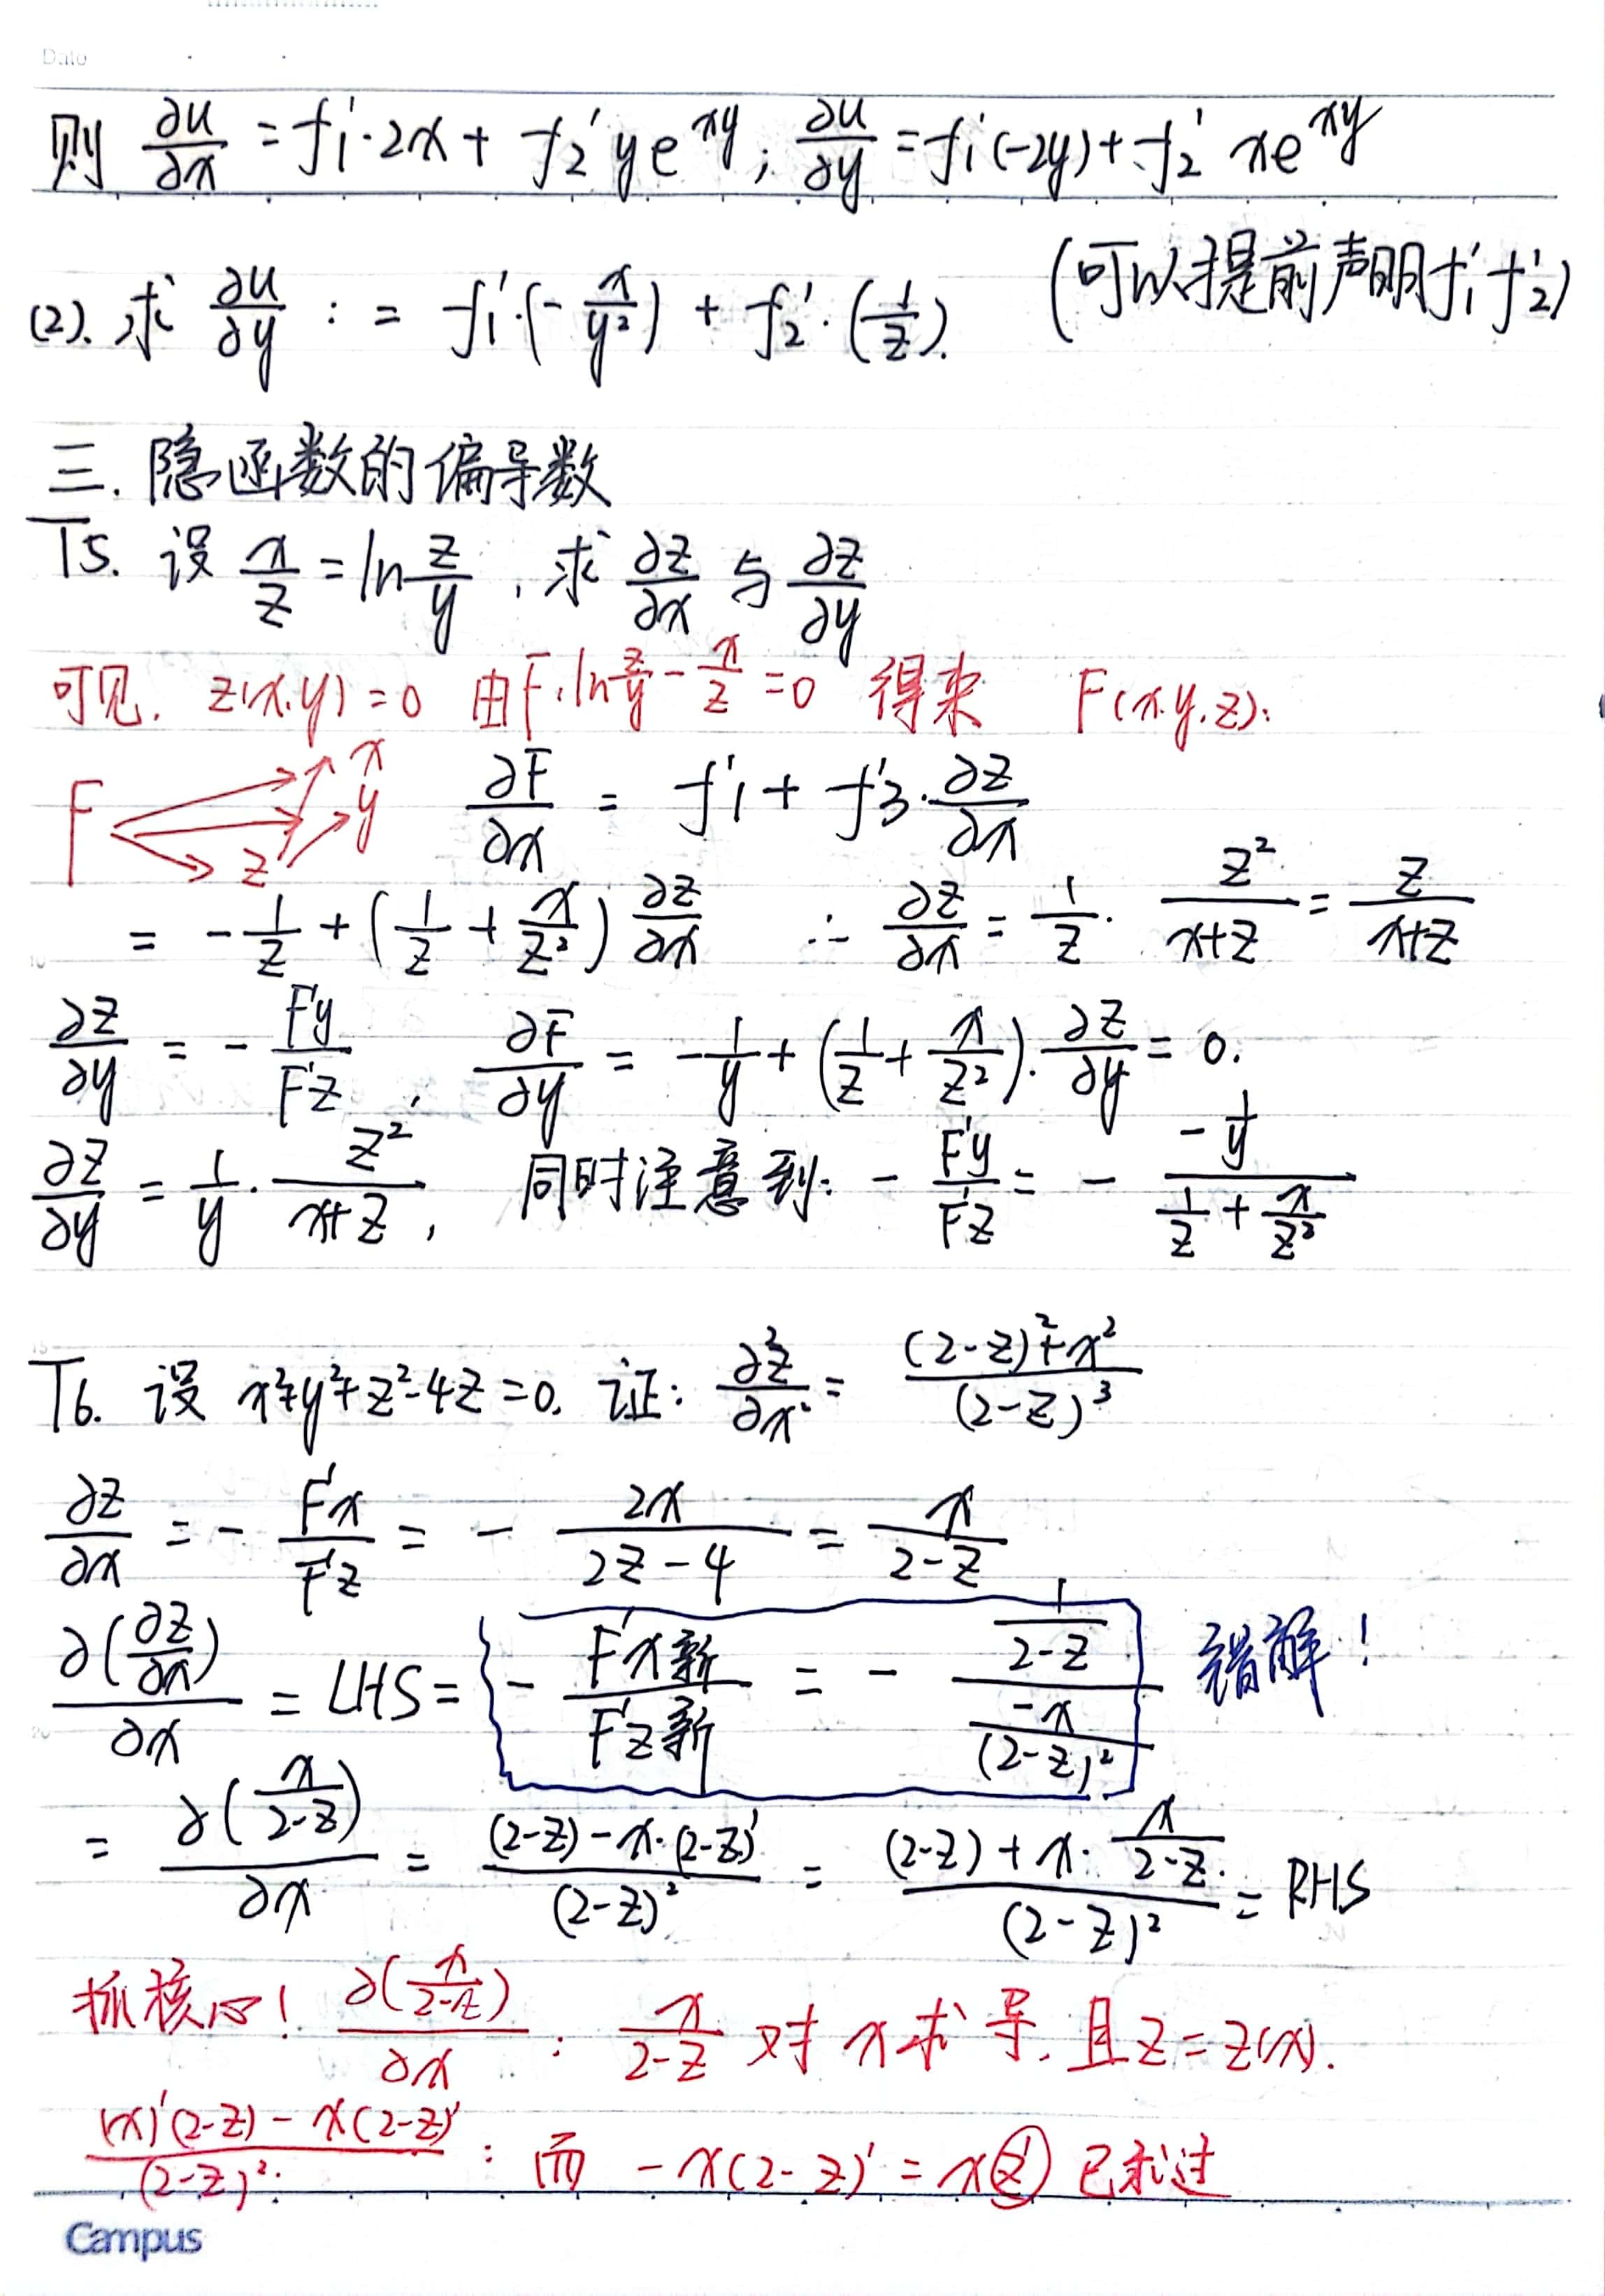 Date
则 ∂u/∂x = f₁'·2x + f₂' y e^{xy}; ∂u/∂y = f₁'(-2y) + f₂' x e^{xy}
(可以提前声明 f₁' f₂')
(2). 求 ∂u/∂y : = f₁'·(-x/y²) + f₂'·(1/z).
三. 隐函数的偏导数
T5. 设 x/z = ln z/y , 求 ∂z/∂x 与 ∂z/∂y
可见. z(x.y) = 0 由F. ln z/y - x/z = 0 得来 F(x.y.z).
F x y z
∂F/∂x = f'1 + f'3·∂z/∂x
= -1/z + (1/z + x/z²) ∂z/∂x ∴ ∂z/∂x = 1/z · z²/(x+z) = z/(x+z)
∂z/∂y = - F'y/F'z , ∂F/∂y = -1/y + (1/z + x/z²)·∂z/∂y = 0.
∂z/∂y = 1/y · z²/(x+z) , 同时注意到: - F'y/F'z = - (-1/y)/(1/z + x/z²)
T6. 设 x²+y²+z²-4z=0. 证: ∂²z/∂x² = ((2-z)²+x²)/(2-z)³
∂z/∂x = - F'x/F'z = - 2x/(2z-4) = x/(2-z)
∂(∂z/∂x)/∂x = LHS = - F'x新/F'z新 = - (1/(2-z))/(-x/(2-z)²) 错解!
= ∂(x/(2-z))/∂x = ((2-z)-x·(2-z)')/(2-z)² = ((2-z)+x·x/(2-z))/(2-z)² = RHS
抓核心! ∂(x/(2-z))/∂x : x/(2-z) 对 x 求导. 且 z = z(x).
((x)'(2-z) - x(2-z)')/(2-z)² : 而 -x(2-z)' = x z' 已求过
Campus